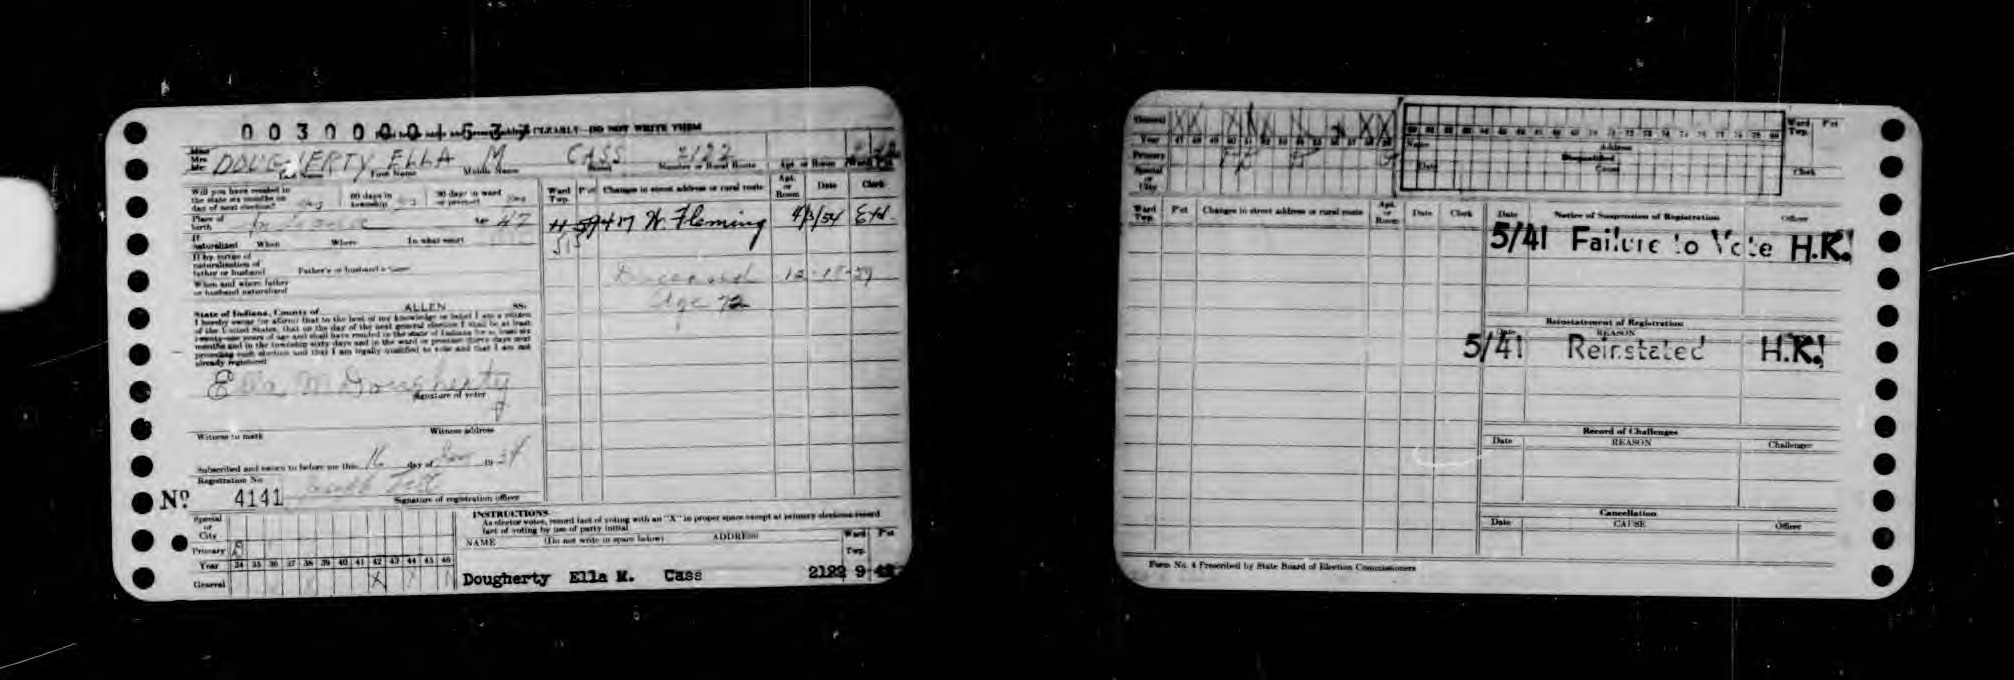 CLEARLY—DO NOT WRITE THEM
Miss
Mrs.
Mr.
DOUGHERTY ELLA M CASS 2122
Last Name First Name Middle Name Street Number or Rural Route Apt. or Room Ward Pct.
Will you have resided in
the state six months on
day of next election?
60 days in
township
30 days in ward
or precinct
Place of
birth Indiana Age 47
If
naturalized When Where In what court
If by virtue of
naturalization of
father or husband Father's or husband's name
When and where father
or husband naturalized
State of Indiana, County of ALLEN SS:
I hereby swear (or affirm) that to the best of my knowledge or belief I am a citizen
of the United States, that on the day of the next general election I shall be at least
twenty-one years of age and shall have resided in the state of Indiana for at least six
months and in the township sixty days and in the ward or precinct thirty days next
preceding such election and that I am legally qualified to vote and that I am not
already registered
Ella M Dougherty
Signature of voter
Witness to mark Witness address
Subscribed and sworn to before me this 16 day of 1934
Registration No.
No. 4141
Signature of registration officer
Special
or
City
Primary R
Year 34 35 36 37 38 39 40 41 42 43 44 45 46
General X
Ward
Twp. Pct Changes in street address or rural route Apt.
or
Room Date Clerk
417 W. Fleming 4/3/54
515
Deceased
Age 72
INSTRUCTIONS
As elector votes, record fact of voting with an "X" in proper space except at primary elections record
fact of voting by use of party initial
NAME (Do not write in space below) ADDRESS Ward
Twp. Pct
Dougherty Ella M. Cass 2122 9
General
Year 47 48 49 50 51 52 53 54 55 56 57 58 59
Primary
Special
or
City
Name Address
Date Disqualified
Cause
Ward
Twp. Pct
Clerk
Ward
Twp. Pct Changes in street address or rural route Apt.
or
Room Date Clerk
Date Notice of Suspension of Registration Officer
5/41 Failure to Vote H.K!
Reinstatement of Registration
Date REASON
5/41 Reinstated H.K!
Record of Challenges
Date REASON Challenger
Cancellation
Date CAUSE Officer
Form No. 4 Prescribed by State Board of Election Commissioners